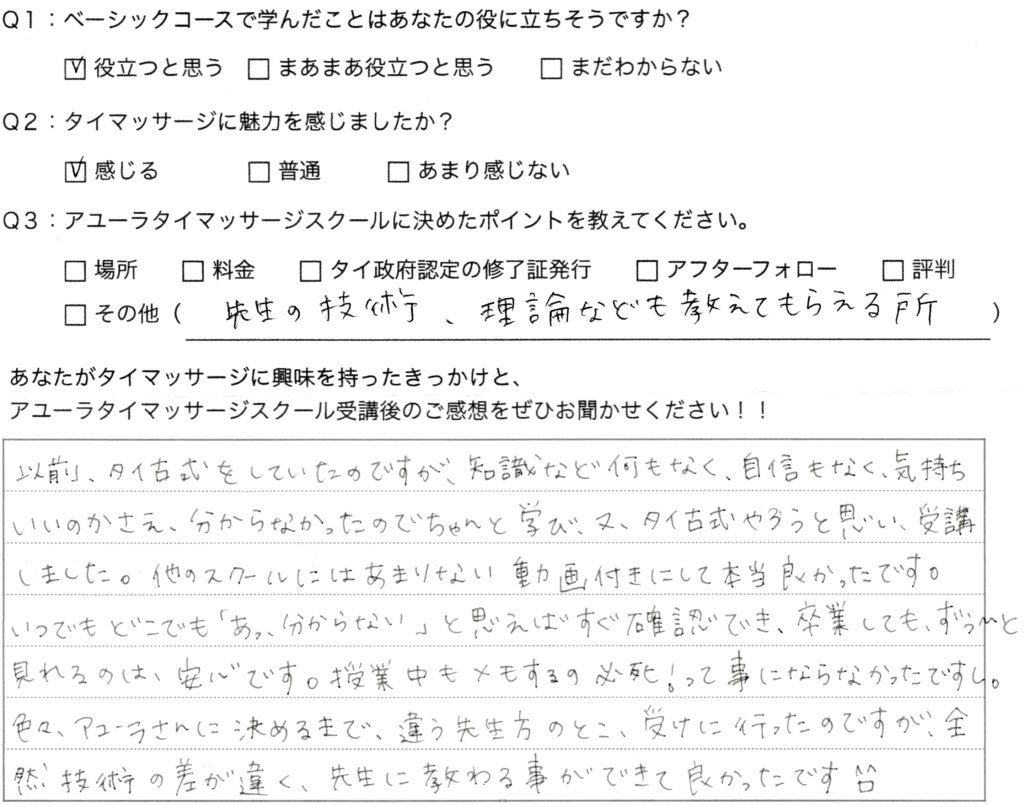 Q1：ベーシックコースで学んだことはあなたの役に立ちそうですか？
☑ 役立つと思う □ まあまあ役立つと思う □ まだわからない
Q2：タイマッサージに魅力を感じましたか？
☑ 感じる □ 普通 □ あまり感じない
Q3：アユーラタイマッサージスクールに決めたポイントを教えてください。
□ 場所 □ 料金 □ タイ政府認定の修了証発行 □ アフターフォロー □ 評判
□ その他（ 先生の技術、理論なども教えてもらえる所 ）
あなたがタイマッサージに興味を持ったきっかけと、
アユーラタイマッサージスクール受講後のご感想をぜひお聞かせください！！
以前、タイ古式をしていたのですが、知識など何もなく、自信もなく、気持ち
いいのかさえ、分からなかったのでちゃんと学び、又、タイ古式やろうと思い、受講
しました。他のスクールにはあまりない動画付きにして本当良かったです。
いつでもどこでも「あっ、分からない」と思えばすぐ確認でき、卒業しても、ずぅ〜と
見れるのは、安心です。授業中もメモするの必死！って事にならなかったですし。
色々、アユーラさんに決めるまで、違う先生方のとこ、受けに行ったのですが、全
然技術の差が違く、先生に教わる事ができて良かったです^^